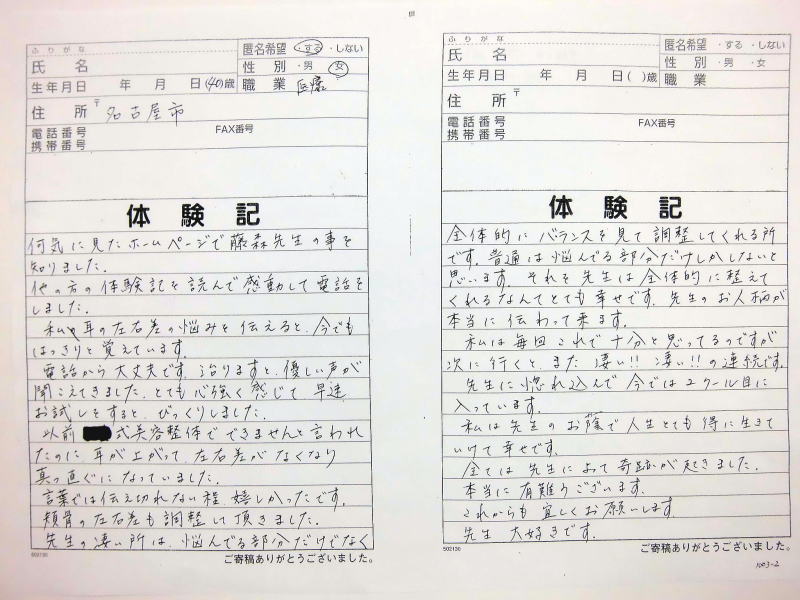 ふりがな
氏 名
匿名希望 ・する ・しない
性 別 ・男 ・女
生年月日 年 月 日(40)歳
職 業 医療
住 所 〒 名古屋市
電話番号
携帯番号
FAX番号
体験記
何気に見たホームページで藤森先生の事を
知りました。
他の方の体験記を読んで感動して電話を
しました。
私の耳の左右差の悩みを伝えると、今でも
はっきりと覚えています。
電話から大丈夫です。治りますと、優しい声が
聞こえてきました。とても心強く感じて早速
お試しをすると、びっくりしました。
以前 式美容整体でできませんと言われ
たのに、耳が上がって、左右差がなくなり
真っ直ぐになっていました。
言葉では伝え切れない程、嬉しかったです。
頬骨の左右差も調整して頂きました。
先生の凄い所は、悩んでる部分だけでなく
502130
ご寄稿ありがとうございました。
ふりがな
氏 名
匿名希望 ・する ・しない
性 別 ・男 ・女
生年月日 年 月 日( )歳
職 業
住 所 〒
電話番号
携帯番号
FAX番号
体験記
全体的にバランスを見て調整してくれる所
です。普通は悩んでる部分だけしかしないと
思います。それを先生は全体的に整えて
くれるなんてとても幸せです。先生のお人柄が
本当に伝わって来ます。
私は毎回これで十分と思ってるのですが
次に行くと、また凄い!!凄い!!の連続です。
先生に惚れ込んで今では2クール目に
入っています。
私は先生のお蔭で人生とても得に生きて
いけて幸せです。
全ては先生によって奇跡が起きました。
本当に有難うございます。
これからも宜しくお願いします。
先生 大好きです。
502130
ご寄稿ありがとうございました。
1003-2